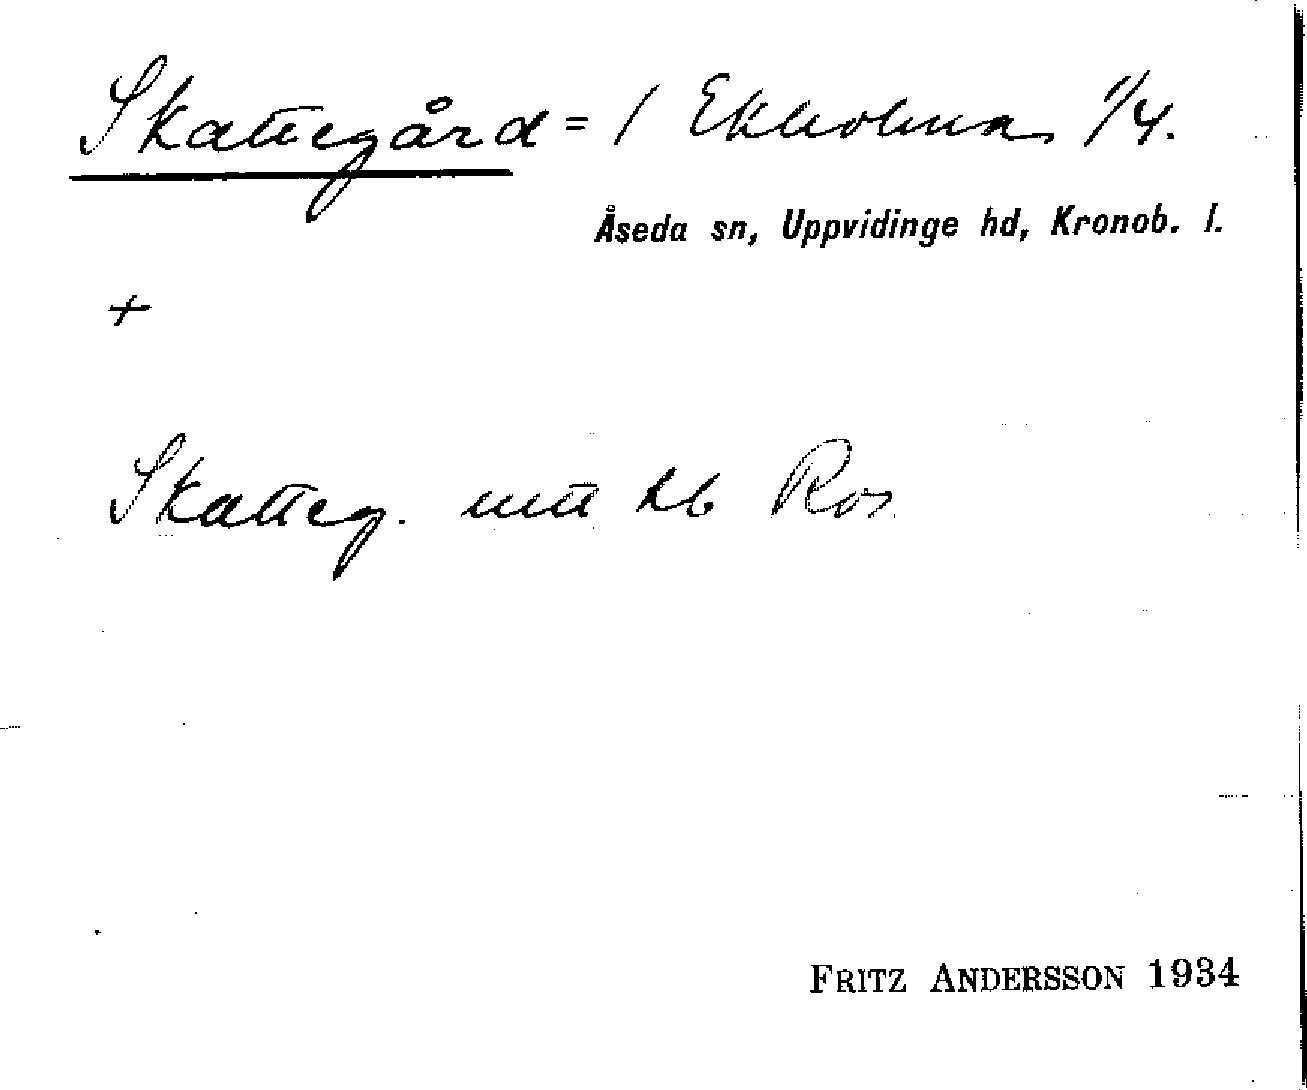 Skattegård = / Ekholma 1/4.
Åseda sn, Uppvidinge hd, Kronob. l.
+
Skatteg. Ros
FRITZ ANDERSSON 1934